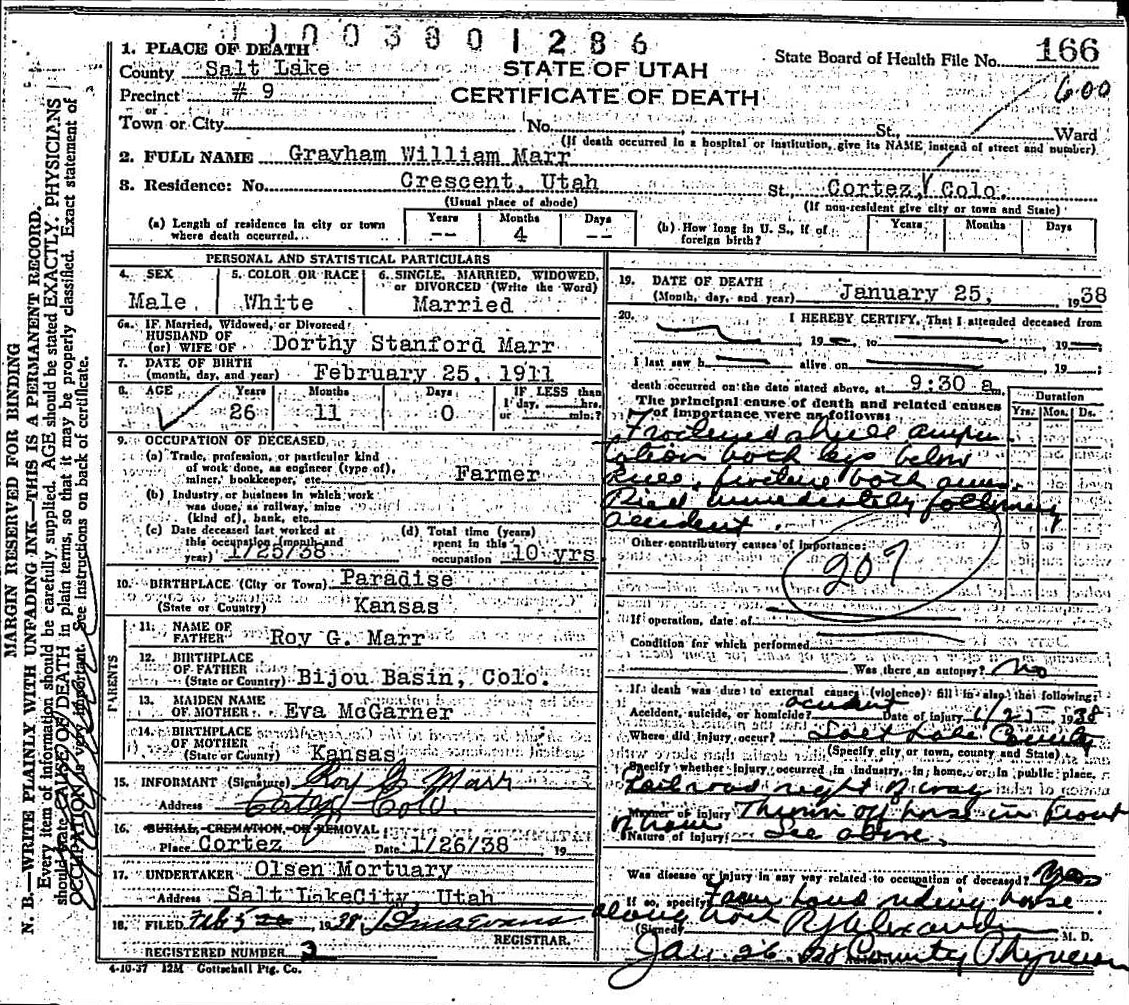 0 0 0 3 8 0 1 2 8 6
1. PLACE OF DEATH
County Salt Lake
Precinct # 9
or
Town or City No. St., Ward
STATE OF UTAH
CERTIFICATE OF DEATH
State Board of Health File No. 166
600
(If death occurred in a hospital or institution, give its NAME instead of street and number)
2. FULL NAME Grayham William Marr
3. Residence: No. Crescent, Utah St. Cortez, Colo.
(Usual place of abode) (If non-resident give city or town and State)
(a) Length of residence in city or town where death occurred... Years -- Months 4 Days --
(b) How long in U. S., if of foreign birth? Years Months Days
PERSONAL AND STATISTICAL PARTICULARS
4. SEX Male
5. COLOR OR RACE White
6. SINGLE, MARRIED, WIDOWED, or DIVORCED (Write the Word) Married
6a. IF Married, Widowed, or Divorced
HUSBAND OF
(or) WIFE OF Dorthy Stanford Marr
7. DATE OF BIRTH
(month, day, and year) February 25, 1911
8. AGE Years 26 Months 11 Days 0 IF LESS than 1 day, hrs. or min.?
9. OCCUPATION OF DECEASED
(a) Trade, profession, or particular kind of work done, as engineer (type of), miner, bookkeeper, etc. Farmer
(b) Industry or business in which work was done, as railway, mine (kind of), bank, etc.
(c) Date deceased last worked at this occupation (month and year) 1/25/38
(d) Total time (years) spent in this occupation 10 yrs
10. BIRTHPLACE (City or Town) Paradise
(State or Country) Kansas
PARENTS
11. NAME OF FATHER Roy G. Marr
12. BIRTHPLACE OF FATHER
(State or Country) Bijou Basin, Colo.
13. MAIDEN NAME OF MOTHER Eva McGarner
14. BIRTHPLACE OF MOTHER
(State or Country) Kansas
15. INFORMANT (Signature) Roy G Marr
Address Cortez Colo.
16. BURIAL, CREMATION, OR REMOVAL
Place Cortez Date 1/26/38 19
17. UNDERTAKER Olsen Mortuary
Address Salt LakeCity, Utah
18. FILED Feb 3 1938 Evans
REGISTRAR.
REGISTERED NUMBER 3
4-10-37 12M Gottschall Ptg. Co.
19. DATE OF DEATH
(Month, day, and year) January 25, 1938
20. I HEREBY CERTIFY, That I attended deceased from
19 to 19
I last saw h alive on 19
death occurred on the date stated above, at 9:30 a m.
The principal cause of death and related causes of importance were as follows:
Duration
Yrs. Mos. Ds.
Fractured skull ampu-
tation both legs below
knee, fracture both arms.
Died immediately following
accident.
Other contributory causes of importance:
207
If operation, date of
Condition for which performed
Was there an autopsy? no
If death was due to external causes (violence) fill in also the following:
Accident, suicide, or homicide? accident Date of injury 1/25 1938
Where did injury occur? Salt Lake County
(Specify city or town, county and State)
Specify whether injury occurred in industry, in home, or in public place,
Railroad right of way
Manner of injury Thrown off horse in front
of train
Nature of injury See above.
Was disease or injury in any way related to occupation of deceased? Yes
If so, specify Farm hand riding horse
along track
(Signed) R J Alexander M. D.
Jan. 26. 38 County Physician
MARGIN RESERVED FOR BINDING
N. B.—WRITE PLAINLY WITH UNFADING INK—THIS IS A PERMANENT RECORD.
Every item of information should be carefully supplied. AGE should be stated EXACTLY. PHYSICIANS
should state CAUSE OF DEATH in plain terms, so that it may be properly classified. Exact statement of
OCCUPATION is very important. See instructions on back of certificate.